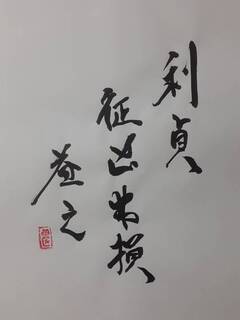 利貞
征凶弗損
益之